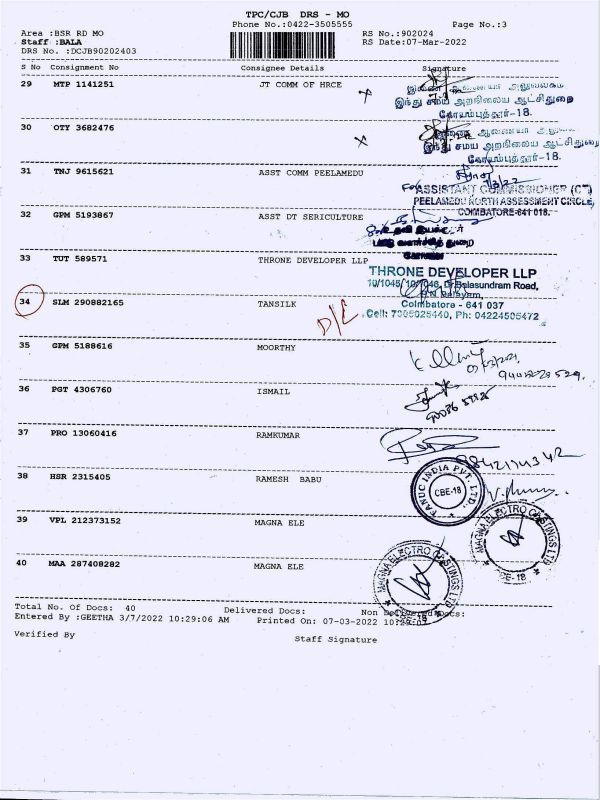 TPC/CJB DRS - MO
Phone No.:0422-3505555
Page No.:3
Area :BSR RD MO
RS No.:902024
Staff :BALA
RS Date:07-Mar-2022
DRS No. :DCJB90202403
S No Consignment No Consignee Details Signature
29 MTP 1141251 JT COMM OF HRCE
இந்து சமய அறநிலைய ஆட்சிதுறை
கோயம்புத்தூர்-18.
30 OTY 3682476
இந்து சமய அறநிலைய ஆட்சிதுறை
கோயம்புத்தூர்-18.
31 TNJ 9615621 ASST COMM PEELAMEDU
For ASSISTANT COMMISSIONER (CT)
PEELAMEDU NORTH ASSESSMENT CIRCLE,
COIMBATORE-641 018.
32 GPM 5193867 ASST DT SERICULTURE
33 TUT 589571 THRONE DEVELOPER LLP
THRONE DEVELOPER LLP
10/1045, 10/1046, Dr.Balasundram Road,
Coimbatore - 641 037
34 SLM 290882165 TANSILK
D/L
Cell: 7305025440, Ph: 04224505472
35 GPM 5188616 MOORTHY
36 PGT 4306760 ISMAIL
37 PRO 13060416 RAMKUMAR
38 HSR 2315405 RAMESH BABU
FANUC INDIA PVT. LTD.
CBE-18
39 VPL 212373152 MAGNA ELE
MAGNA ELECTRO CASTINGS LTD
CBE-18
40 MAA 287408282 MAGNA ELE
MAGNA ELECTRO CASTINGS LTD
Total No. Of Docs: 40 Delivered Docs: Non Delivered Docs:
Entered By :GEETHA 3/7/2022 10:29:06 AM Printed On: 07-03-2022 10:29:07
Verified By Staff Signature